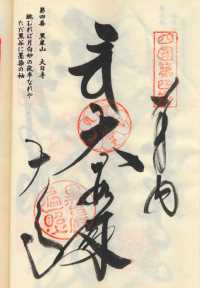 四国第四番
奉納
大日如来
大日寺
第四番 黒巌山 大日寺
眺むれば月白妙の夜半なれや
ただ黒谷に墨染の袖